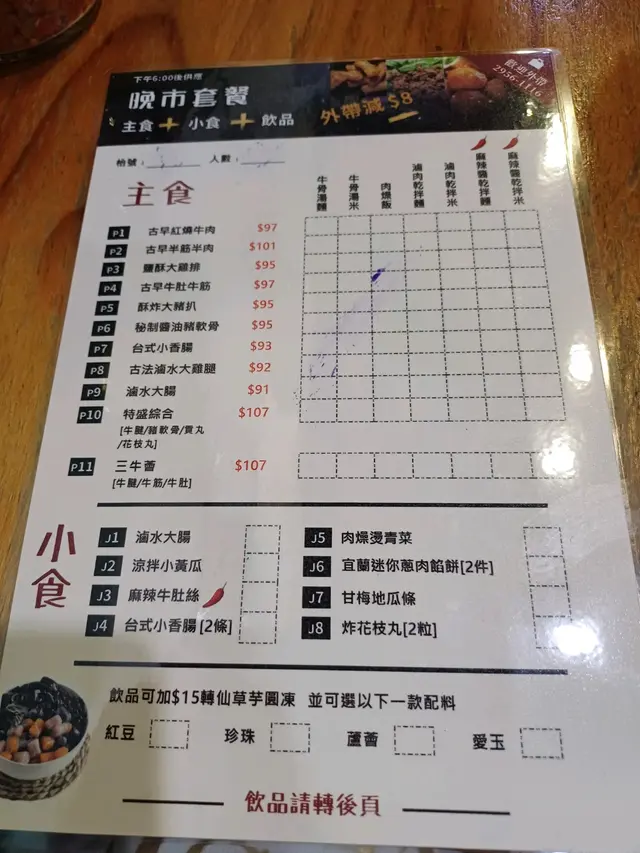 下午6:00後供應
晚市套餐
主食＋小食＋飲品
外帶減 $8
歡迎外帶
2956-1116
枱號：
人數：
主食
牛骨湯麵
牛骨湯米
肉燥飯
滷肉乾拌麵
滷肉乾拌米
麻辣醬乾拌麵
麻辣醬乾拌米
P1 古早紅燒牛肉 $97
P2 古早半筋半肉 $101
P3 鹽酥大雞排 $95
P4 古早牛肚牛筋 $97
P5 酥炸大豬扒 $95
P6 秘制醬油豬軟骨 $95
P7 台式小香腸 $93
P8 古法滷水大雞腿 $92
P9 滷水大腸 $91
P10 特盛綜合 $107
[牛腱/豬軟骨/貢丸
/花枝丸]
P11 三牛薈 $107
[牛腱/牛筋/牛肚]
小食
J1 滷水大腸
J2 涼拌小黃瓜
J3 麻辣牛肚絲
J4 台式小香腸[2條]
J5 肉燥燙青菜
J6 宜蘭迷你蔥肉餡餅[2件]
J7 甘梅地瓜條
J8 炸花枝丸[2粒]
飲品可加$15轉仙草芋圓凍 並可選以下一款配料
紅豆 珍珠 蘆薈 愛玉
飲品請轉後頁